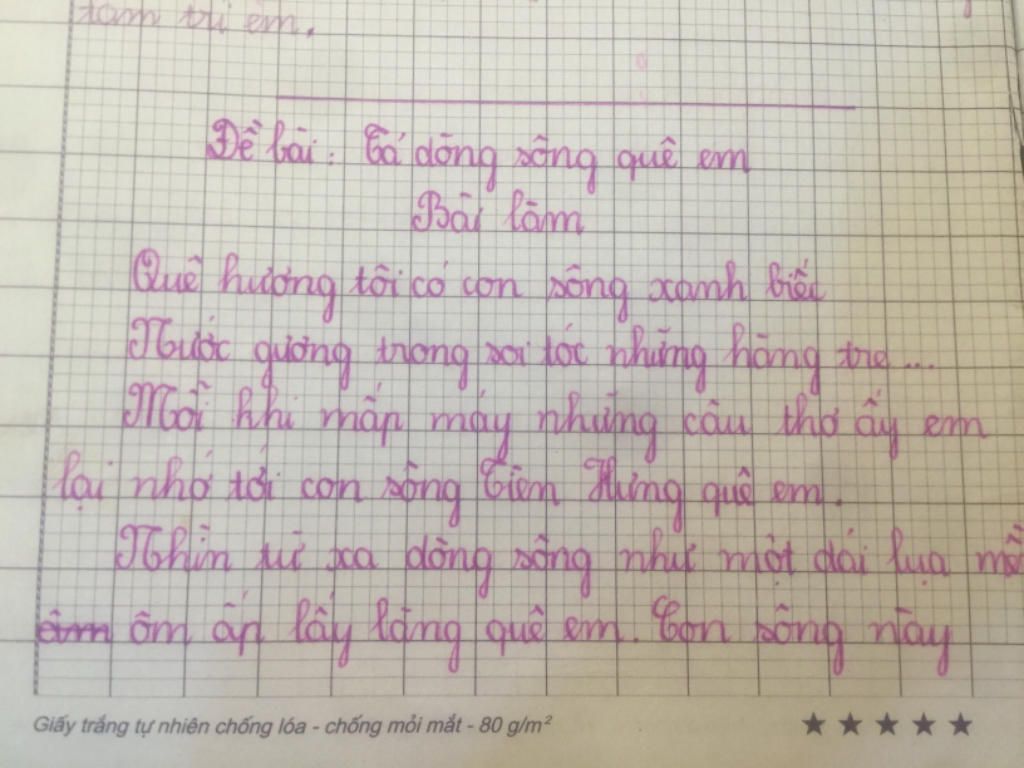 tâm trí em.
Đề bài: Tả dòng sông quê em
Bài làm
Quê hương tôi có con sông xanh biếc
Nước gương trong soi tóc những hàng tre...
Mỗi khi mấp máy những câu thơ ấy em
lại nhớ tới con sông Tiên Hưng quê em.
Nhìn từ xa dòng sông như một dải lụa
ôm ấp lấy làng quê em. Con sông này
Giấy trắng tự nhiên chống lóa - chống mỏi mắt - 80 g/m²